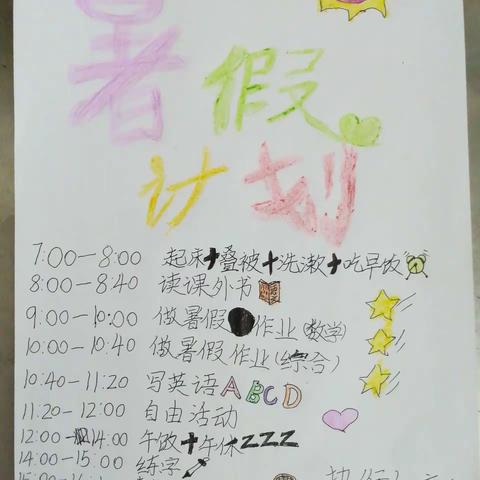 暑假
计划
7:00—8:00 起床+叠被+洗漱+吃早饭
8:00—8:40 读课外书
9:00—10:00 做暑假作业(数学)
10:00—10:40 做暑假作业(综合)
10:40—11:20 写英语ABCD
11:20—12:00 自由活动
12:00—14:00 午饭+午休ZZZ
14:00—15:00 练字